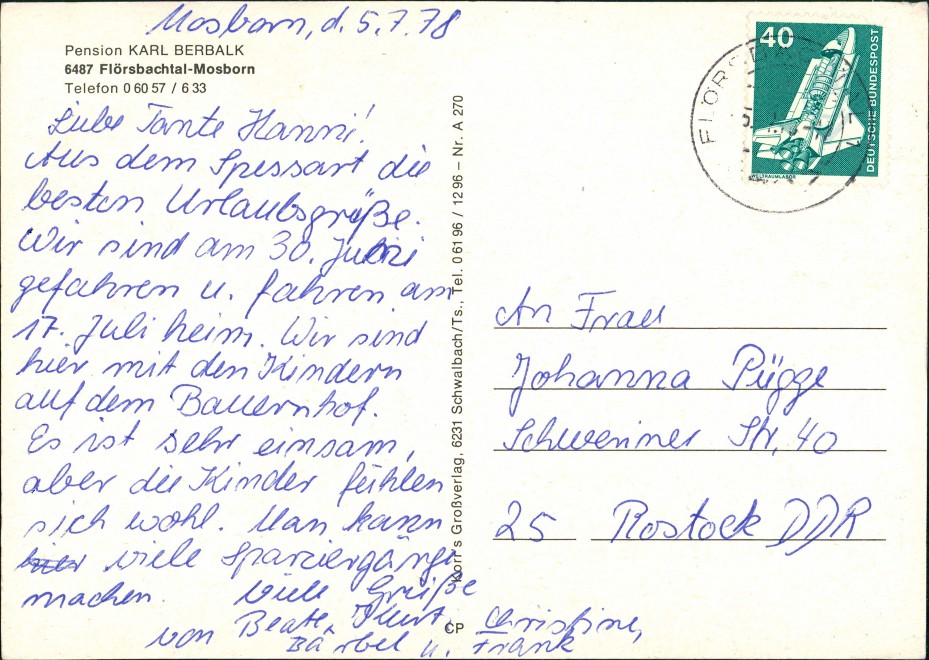 Mosborn, d. 5.7.78
Pension KARL BERBALK
6487 Flörsbachtal-Mosborn
Telefon 0 60 57 / 6 33
Liebe Tante Hanni!
Aus dem Spessart die
besten Urlaubsgrüße.
Wir sind am 30. Juni
gefahren u. fahren am
17. Juli heim. Wir sind
hier mit den Kindern
auf dem Bauernhof.
Es ist sehr einsam,
aber die Kinder fühlen
sich wohl. Man kann
viele Spaziergänge
machen. Viele Grüße
von Beate, Kurt, Christine,
Bärbel u. Frank
Korr's Großverlag, 6231 Schwalbach/Ts., Tel. 0 61 96 / 12 96 – Nr. A 270
CP
40
DEUTSCHE BUNDESPOST
WELTRAUMLABOR
An Frau
Johanna Pügge
Schweriner Str. 40
25 Rostock DDR